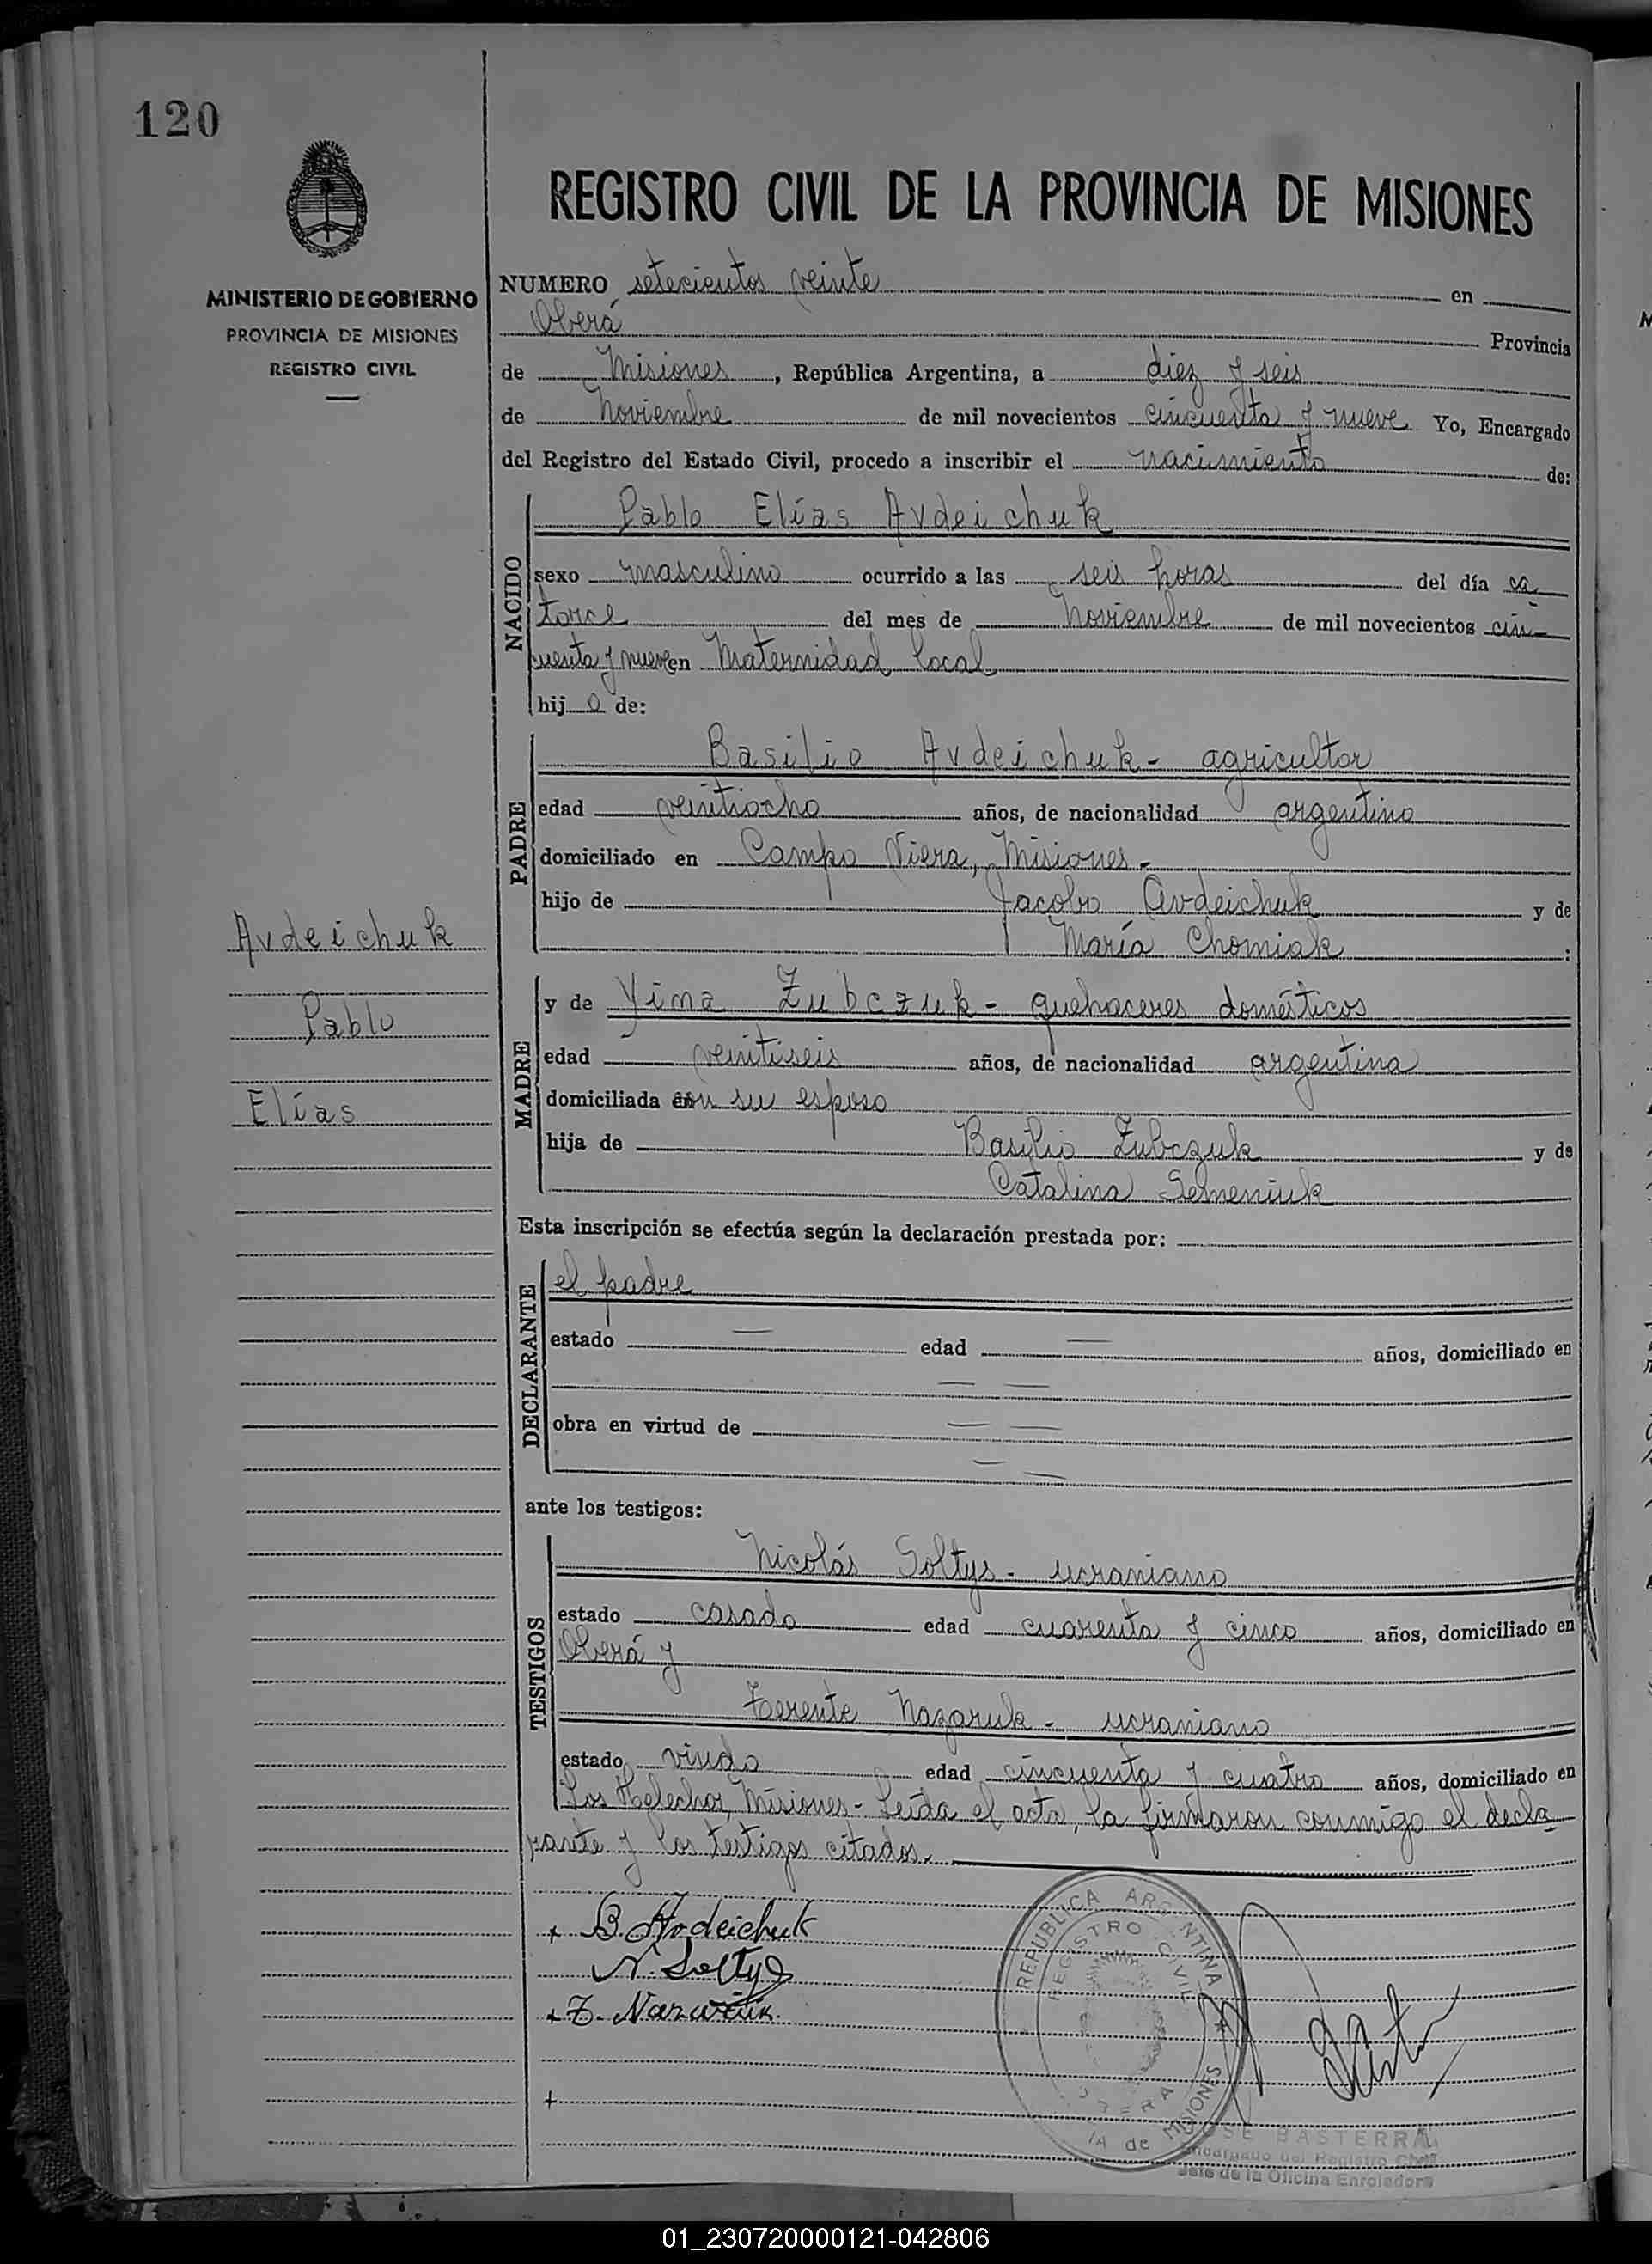 120
REGISTRO CIVIL DE LA PROVINCIA DE MISIONES
MINISTERIO DE GOBIERNO
PROVINCIA DE MISIONES
REGISTRO CIVIL
NUMERO setecientos veinte en
Oberá Provincia
de Misiones, República Argentina, a diez y seis
de Noviembre de mil novecientos cincuenta y nueve Yo, Encargado
del Registro del Estado Civil, procedo a inscribir el nacimiento de:
NACIDO
Pablo Elías Avdeichuk
sexo masculino ocurrido a las seis horas del día ca
torce del mes de Noviembre de mil novecientos cin
cuenta y nueve en Maternidad local
hijo de:
PADRE
Basilio Avdeichuk - agricultor
edad veintiocho años, de nacionalidad argentino
domiciliado en Campo Viera, Misiones -
hijo de Jacobo Avdeichuk y de
María Chomiak :
Avdeichuk
Pablo
Elías
MADRE
y de Yima Zubczuk - quehaceres domésticos
edad veintiseis años, de nacionalidad argentina
domiciliada con su esposo
hija de Basilio Zubczuk y de
Catalina Semeniuk
Esta inscripción se efectúa según la declaración prestada por:
DECLARANTE
el padre
estado — edad — años, domiciliado en
— —
obra en virtud de — —
— —
ante los testigos:
TESTIGOS
Nicolás Soltys - ucraniano
estado casado edad cuarenta y cinco años, domiciliado en
Oberá y
Terente Nazaruk - ucraniano
estado viudo edad cincuenta y cuatro años, domiciliado en
Los Helechos, Misiones - Leída el acta, la firmaron conmigo el decla
rante y los testigos citados.
+ B. Avdeichuk
N. Soltys
+ T. Nazaruk
+
REPUBLICA ARGENTINA
REGISTRO CIVIL
OBERA
IA de MISIONES
JOSE BASTERRA
Encargado del Registro Civil
Jefe de la Oficina Enroladora
01_230720000121-042806